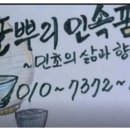 뿌리 민속품
~민초의 삶과 향
010-7372-2